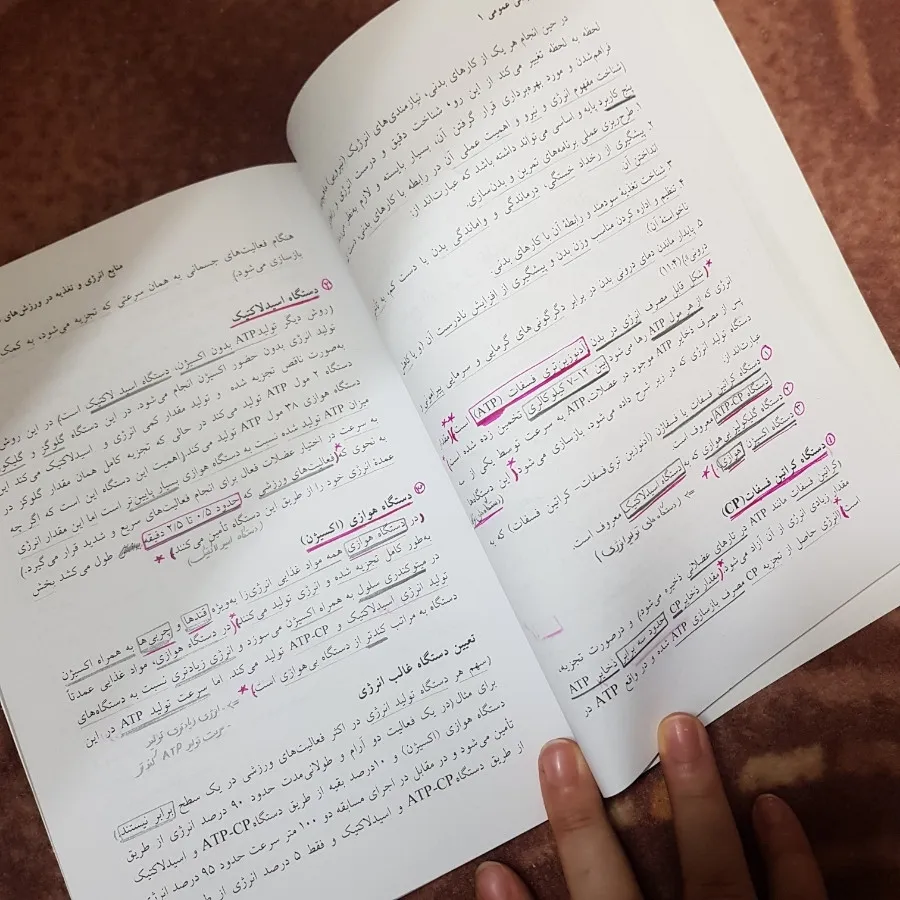 در حین انجام هر یک از کارهای بدنی، نیازمندی‌های انرژتیک (نیرویی)
لحظه به لحظه تغییر می‌کند. از این رو، شناخت دقیق و درست انرژی و
فراهم‌شدن و مورد بهره‌برداری قرار گرفتن آن، بسیار بایسته و لازم
(شناخت مفهوم انرژی و نیرو و اهمیت عملی آن در رابطه با کارهای بدنی دست
پنج کاربرد پایه و اساسی می‌تواند داشته باشد که عبارت‌اند از:
۱. طرح‌ریزی عملی برنامه‌های تمرین و بدن‌سازی.
۲. پیشگیری از رخداد خستگی، درماندگی و واماندگی بدن یا دست کم
انداختن آن
۳. شناخت تغذیهٔ سودمند و رابطهٔ آن با کارهای بدنی
۴. تنظیم و اداره کردن مناسب وزن بدن و پیشگیری از افزایش نادرست آن
ناخواستهٔ آن)
۵. پایدار ماندن دمای درونی بدن در برابر دگرگونی‌های گرمایی و سرمایی
درونی»)(۱۱۴)
(شکل قابل مصرف انرژی در بدن آدنوزین‌تری فسفات (ATP)
انرژی که از هر مول ATP رها می‌شود بین ۱۲-۷ کیلوکالری تخمین زده شده است)
پس از مصرف ذخایر ATP موجود در عضلات، ATP به سرعت توسط یکی از
دستگاه تولید انرژی که در زیر شرح داده می‌شود، بازسازی می‌شود (این دستگاه‌ها
عبارت‌اند از:
۱ دستگاه کراتین فسفات یا فسفاژن (آدنوزین تری‌فسفات- کراتین فسفات) که به
دستگاه ATP-CP معروف است.
۲ دستگاه گلیکولیز بی‌هوازی که به دستگاه اسیدلاکتیک معروف است.
۳ دستگاه اکسیژن (هوازی)
=> (دستگاه‌های تولید انرژی)
۱ دستگاه کراتین فسفات (CP)
(کراتین فسفات مانند ATP در تارهای عضلانی ذخیره می‌شود) و درصورت تجزیه،
مقدار زیادی انرژی از آن آزاد می‌شود (مقدار ذخایر CP حدود سه برابر ذخایر ATP
است) انرژی حاصل از تجزیه CP مصرف بازسازی ATP شده و در واقع ATP در
منابع انرژی و تغذیه در ورزش‌های
هنگام فعالیت‌های جسمانی به همان سرعتی که تجزیه می‌شود، به کمک
بازسازی می‌شود)
۲ دستگاه اسیدلاکتیک
(روش دیگر تولید ATP بدون اکسیژن، دستگاه اسید لاکتیک است) در این روش
تولید انرژی بدون حضور اکسیژن انجام می‌شود. در این دستگاه گلوکز و
به‌صورت ناقص تجزیه شده و تولید مقدار کمی انرژی و اسیدلاکتیک می‌کند
دستگاه ۲ مول ATP تولید می‌کند، در حالی که تجزیه کامل همان مقدار گلوکز در
دستگاه هوازی ۳۸ مول ATP تولید می‌کند (اهمیت این دستگاه این است که اگر چه
میزان ATP تولید شده نسبت به دستگاه هوازی بسیار پایین‌تر است اما این مقدار انرژی
به سرعت در اختیار عضلات فعال برای انجام فعالیت‌های سریع و شدید قرار می‌گیرد.)
به نحوی که (فعالیت‌های ورزشی که حدود ۰/۵ تا ۲/۵ دقیقه طول می‌کشد بخش
عمدهٔ انرژی خود را از طریق این دستگاه تأمین می‌کنند)
(دستگاه اسیدلاکتیک)
۳ دستگاه هوازی (اکسیژن)
(در دستگاه هوازی همه مواد غذایی انرژی‌زا به‌ویژه قندها و چربی‌ها به همراه اکسیژن
به‌طور کامل تجزیه شده و انرژی تولید می‌کنند) (در دستگاه هوازی، مواد غذایی عمدتاً
در میتوکندری سلول به همراه اکسیژن می‌سوزد و انرژی زیادتری نسبت به دستگاه‌های
تولید انرژی اسیدلاکتیک و ATP-CP تولید می‌کند. اما سرعت تولید ATP در این
دستگاه به مراتب کندتر از دستگاه بی‌هوازی است)
=> انرژی زیادتری تولید
- سرعت تولید ATP کندتر
تعیین دستگاه غالب انرژی
(سهم هر دستگاه تولید انرژی در اکثر فعالیت‌های ورزشی در یک سطح برابر نیستند.)
برای مثال (در یک فعالیت دو آرام و طولانی‌مدت حدود ۹۰ درصد انرژی از طریق
دستگاه هوازی (اکسیژن) و ۱۰درصد بقیه از طریق دستگاه ATP-CP و اسیدلاکتیک
تأمین می‌شود و در مقابل در اجرای مسابقه دو ۱۰۰ متر سرعت حدود ۹۵ درصد انرژی
از طریق دستگاه ATP-CP و اسیدلاکتیک و فقط ۵ درصد انرژی از